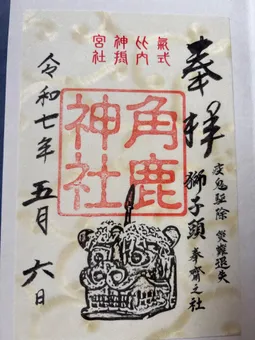 奉拝
疫鬼駆除 災難退失
獅子頭 奉齋之社
式内摂社
氣比神宮
角鹿
神社
令和七年五月六日